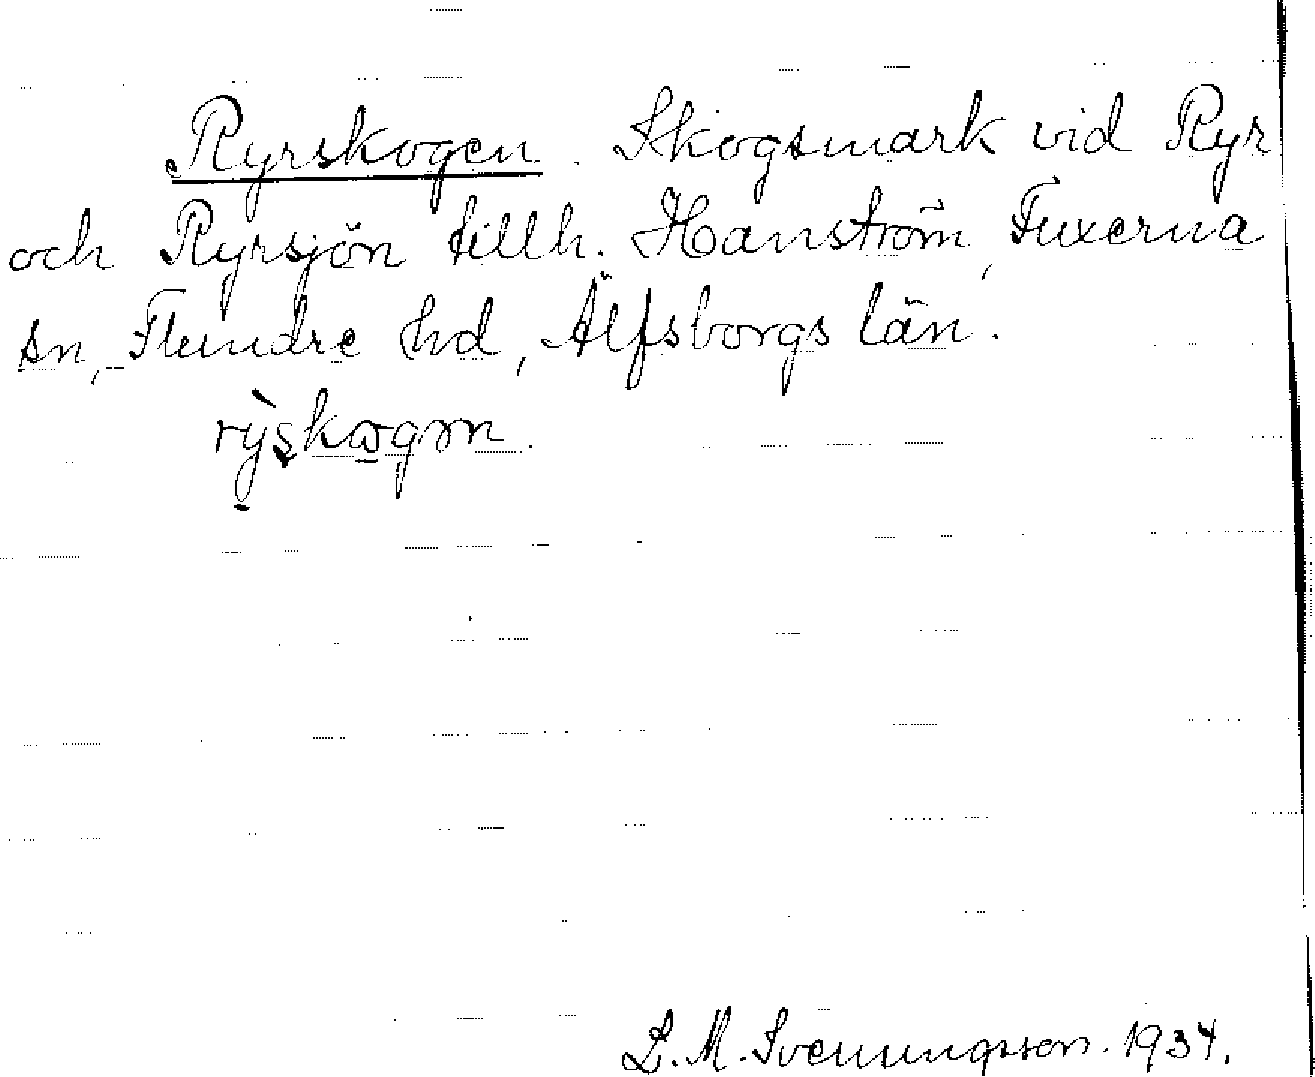 Ryrskogen. Skogsmark vid Ryr
och Ryrsjön tillh. Hanström, Fuxerna
sn, Flundre hd, Älfsborgs län.
rỳskogen.
L. M. Svenungsson. 1934.